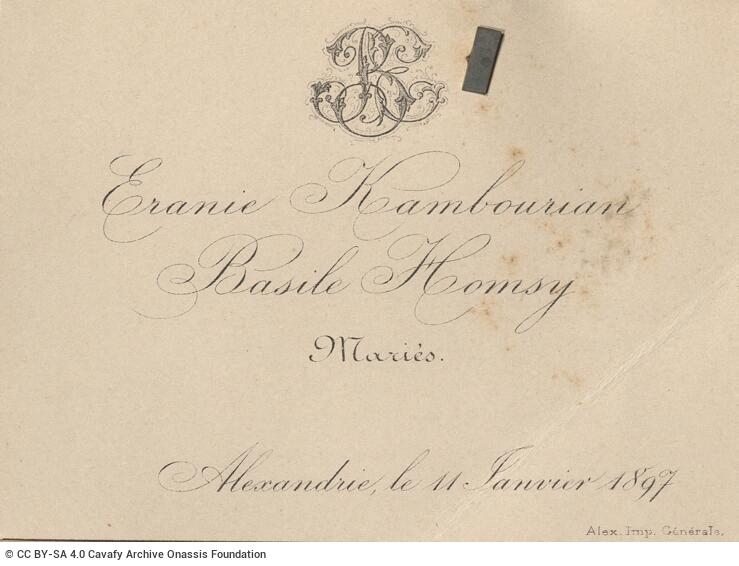 Eranie Kambourian
Basile Homsy
Mariés.
Alexandrie, le 11 Janvier 1897
Alex. Imp. Générale.
© CC BY-SA 4.0 Cavafy Archive Onassis Foundation